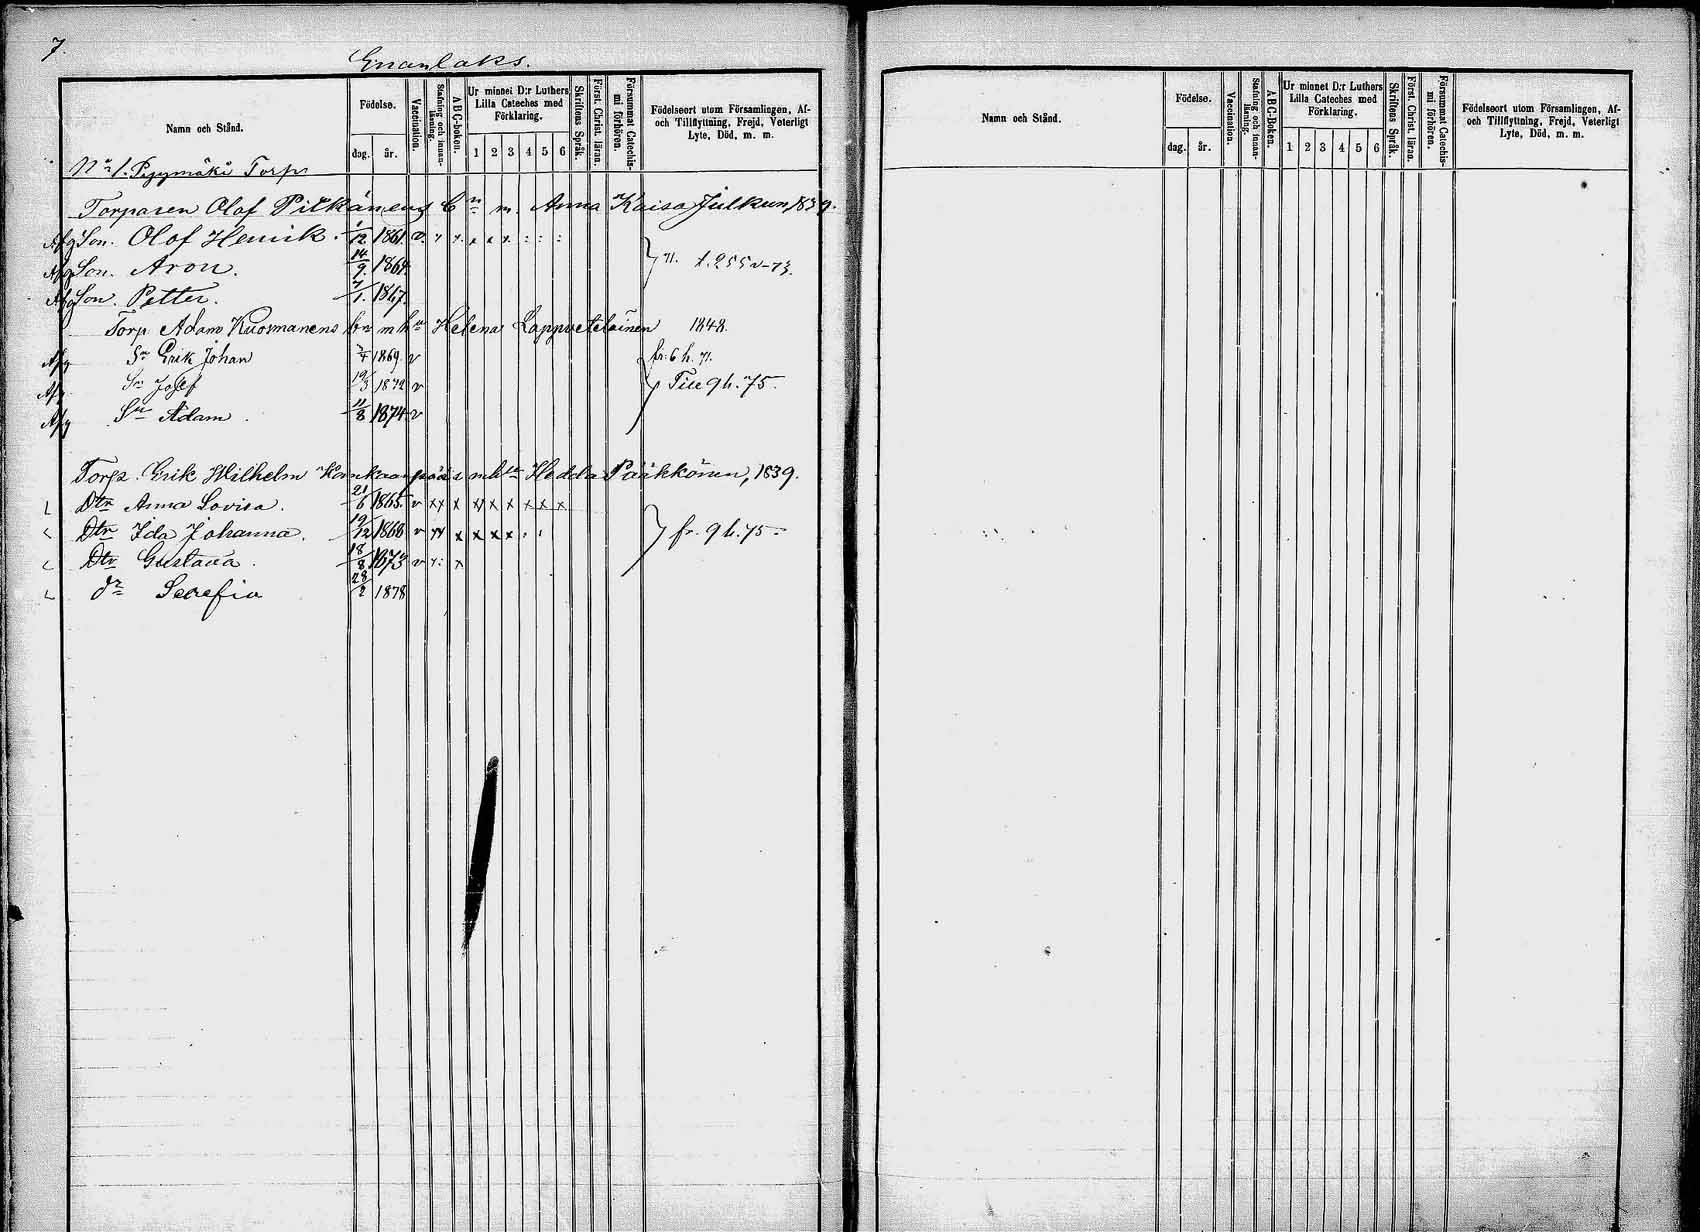 7.
Enanlaks.
Namn och Stånd.
Födelse.
dag.
år.
Vaccination.
Stafning och innan-läsning.
ABC-boken.
Ur minnet D:r Luthers Lilla Cateches med Förklaring.
1 2 3 4 5 6
Skriftens Språk.
Först. Christ. läran.
Försummat Catechis-mi förhören.
Födelseort utom Församlingen, Af- och Tillflyttning, Frejd, Veterligt Lyte, Död, m. m.
No 1. Pyymäki Torp
Torparen Olof Pitkänens bn m. Anna Kaisa Julkun, 1839.
Afg Son. Olof Henrik. 1/12 1861. v. x x. x x x. : : :
Afg Son. Aron. 14/9. 1864 } 71. t. 255 v-73.
Afg Son. Petter. 7/1. 1867.
Torp. Adam Kuosmanens bn m hu Helena Lappveteläinen 1848.
Afg Sn Erik Johan 3/4 1869. v fr. 6 h. 71.
Afg Sn Josef 19/3 1872 v } Till 9 h. 75.
Afg Sn Adam. 11/8 1874 v
Torp. Erik Wilhelm Kankaanpääs m hu Hedda Pääkkönen, 1839.
Dtr Anna Lovisa. 21/6 1865. v xx x x x x x x x
Dtr Ida Johanna. 19/12 1868 v xx x x x x : : } fr. 9 h. 75.
Dtr Gustava. 18/8 1873 v x: x
dr Serefia 28/2 1878
Namn och Stånd.
Födelse.
dag.
år.
Vaccination.
Stafning och innan-läsning.
ABC-Boken.
Ur minnet D:r Luthers Lilla Cateches med Förklaring.
1 2 3 4 5 6
Skriftens Språk.
Först. Christ. läran.
Försummat Catechis-mi förhören.
Födelseort utom Församlingen, Af- och Tillflyttning, Frejd, Veterligt Lyte, Död, m. m.